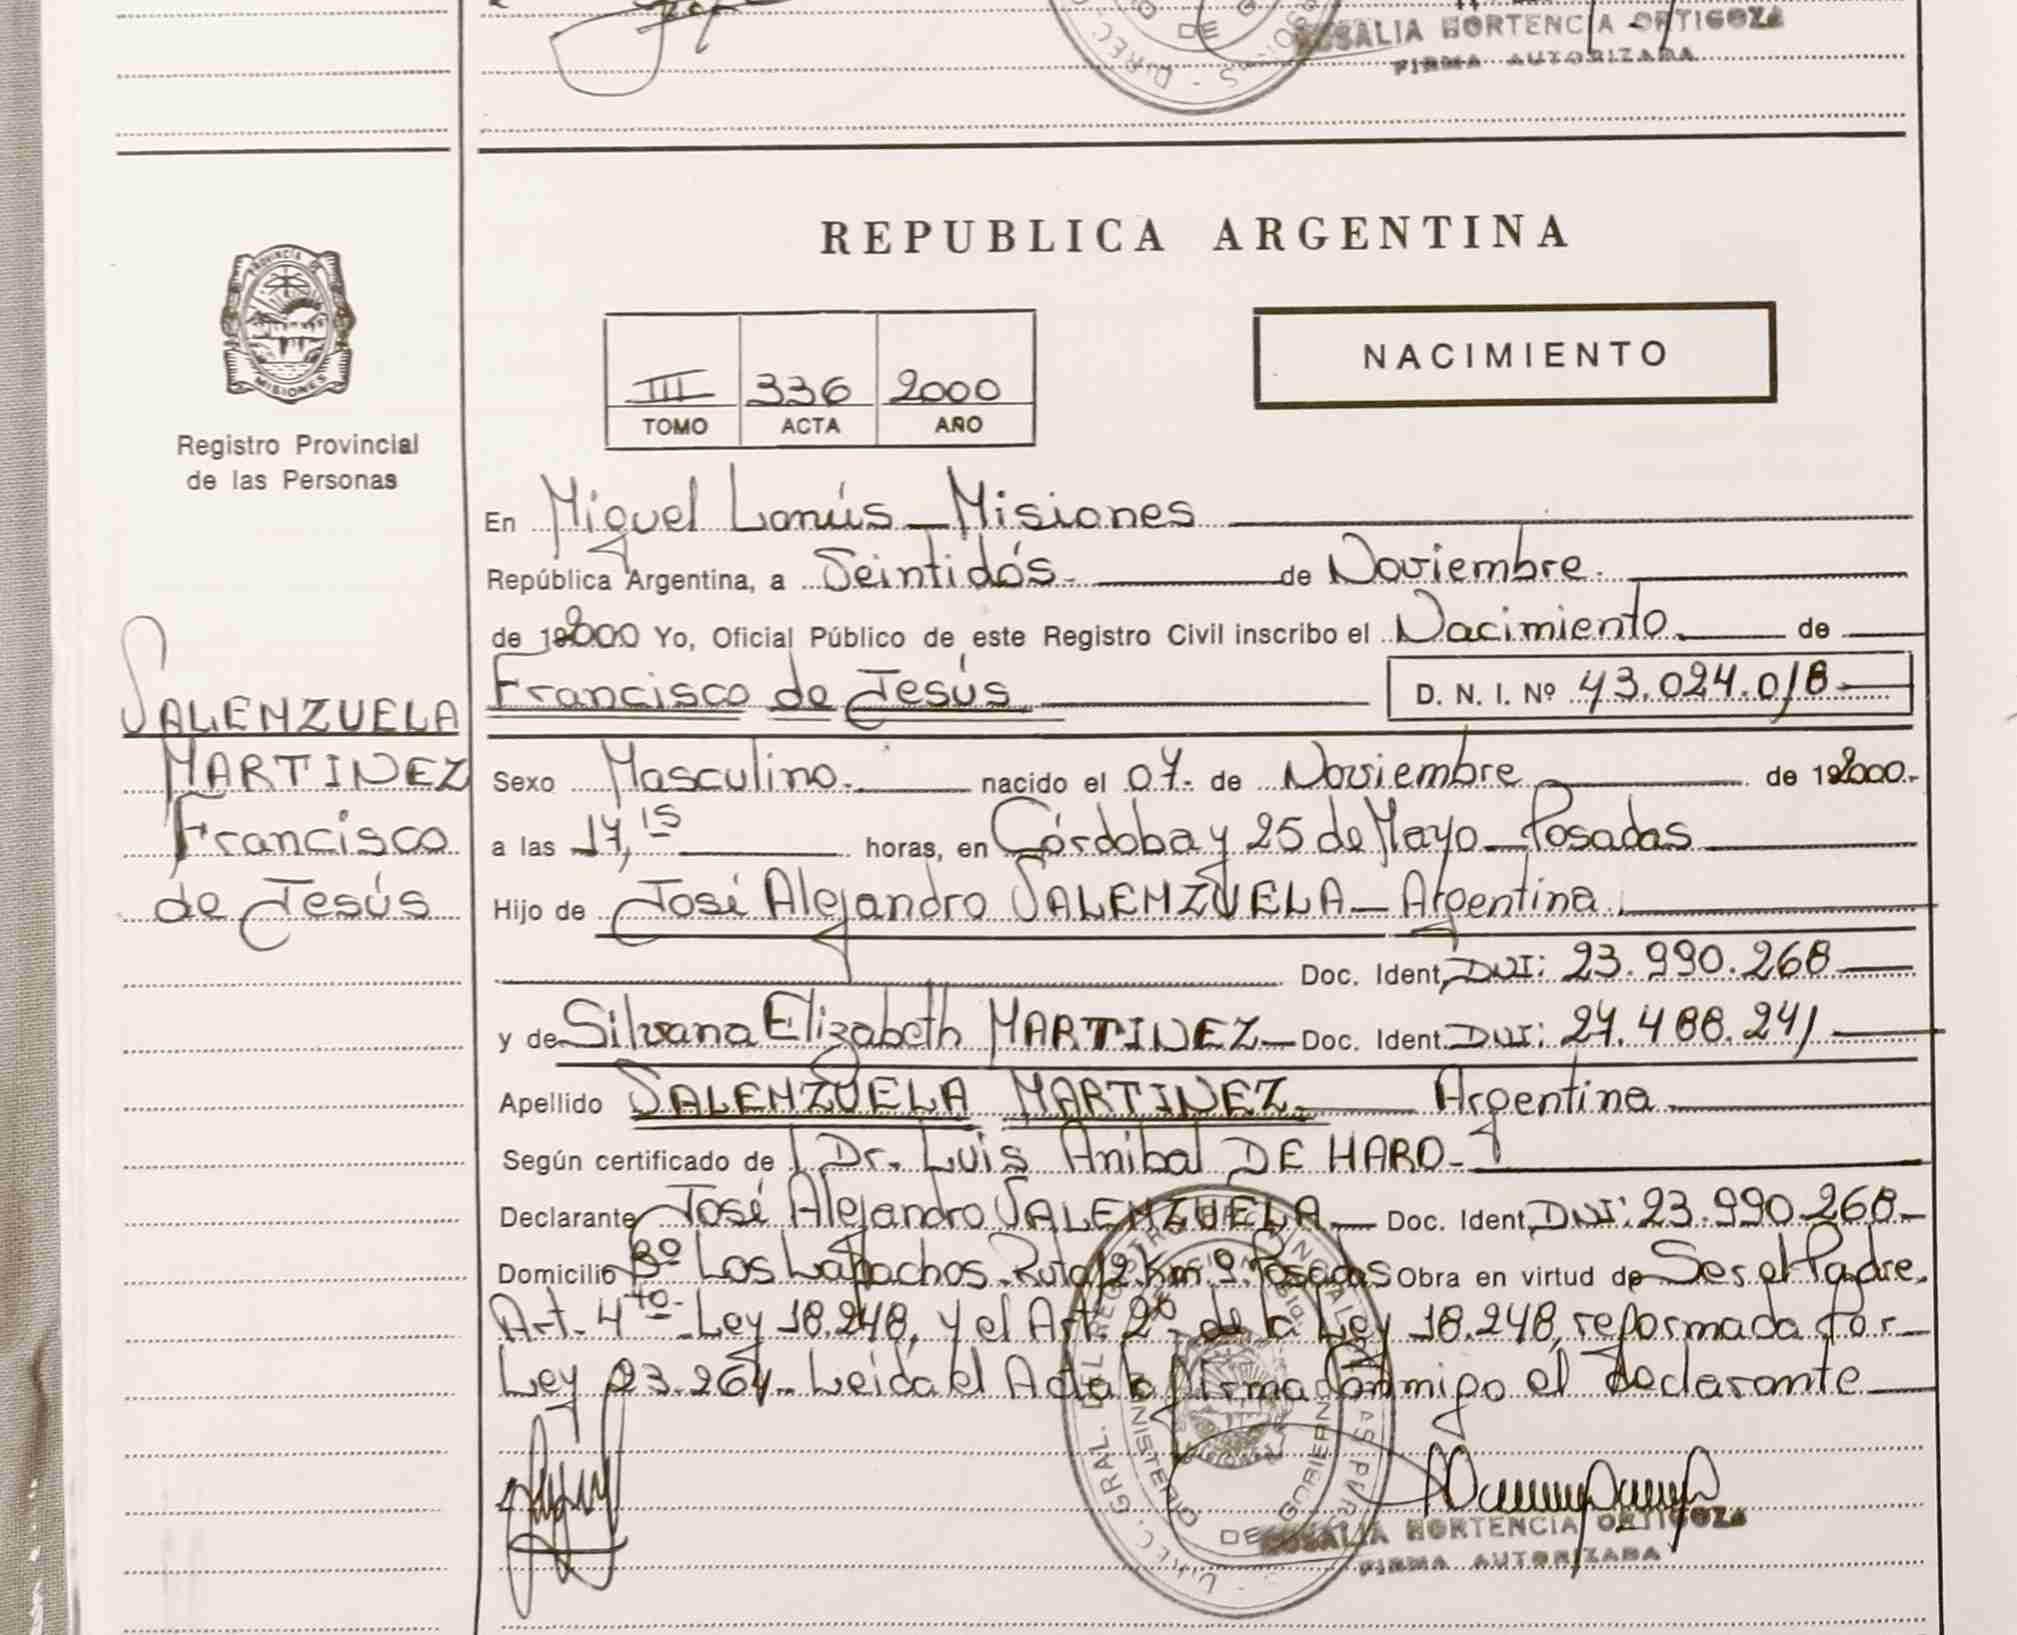 ROSALIA HORTENCIA ORTIGOZA
FIRMA AUTORIZADA
REPUBLICA ARGENTINA
PROVINCIA DE
MISIONES
III 336 2000
TOMO ACTA AÑO
NACIMIENTO
Registro Provincial
de las Personas
En Miguel Lanús - Misiones
República Argentina, a Veintidós de Noviembre
de 192000 Yo, Oficial Público de este Registro Civil inscribo el Nacimiento de
Francisco de Jesús D. N. I. Nº 43.024.018
VALENZUELA
MARTINEZ
Francisco
de Jesús
Sexo Masculino. nacido el 07. de Noviembre de 192000.-
a las 17,15 horas, en Córdoba y 25 de Mayo - Posadas
Hijo de José Alejandro VALENZUELA - Argentina.
Doc. Ident. DNI: 23.990.268
y de Silvana Elizabeth MARTINEZ - Doc. Ident. DNI: 27.488.241
Apellido VALENZUELA MARTINEZ. Argentina
Según certificado de Dr. Luis Anibal DE HARO -
Declarante José Alejandro VALENZUELA - Doc. Ident. DNI: 23.990.268-
Domicilio Bº Los Lapachos - Ruta 12 Km 9. Posadas Obra en virtud de Ser el Padre.
Art. 4to. Ley 18.248, y el Art. 2º de la Ley 18.248, reformada por
Ley 23.264. Leída el Acta la firma conmigo el declarante
ROSALIA HORTENCIA ORTIGOZA
FIRMA AUTORIZADA